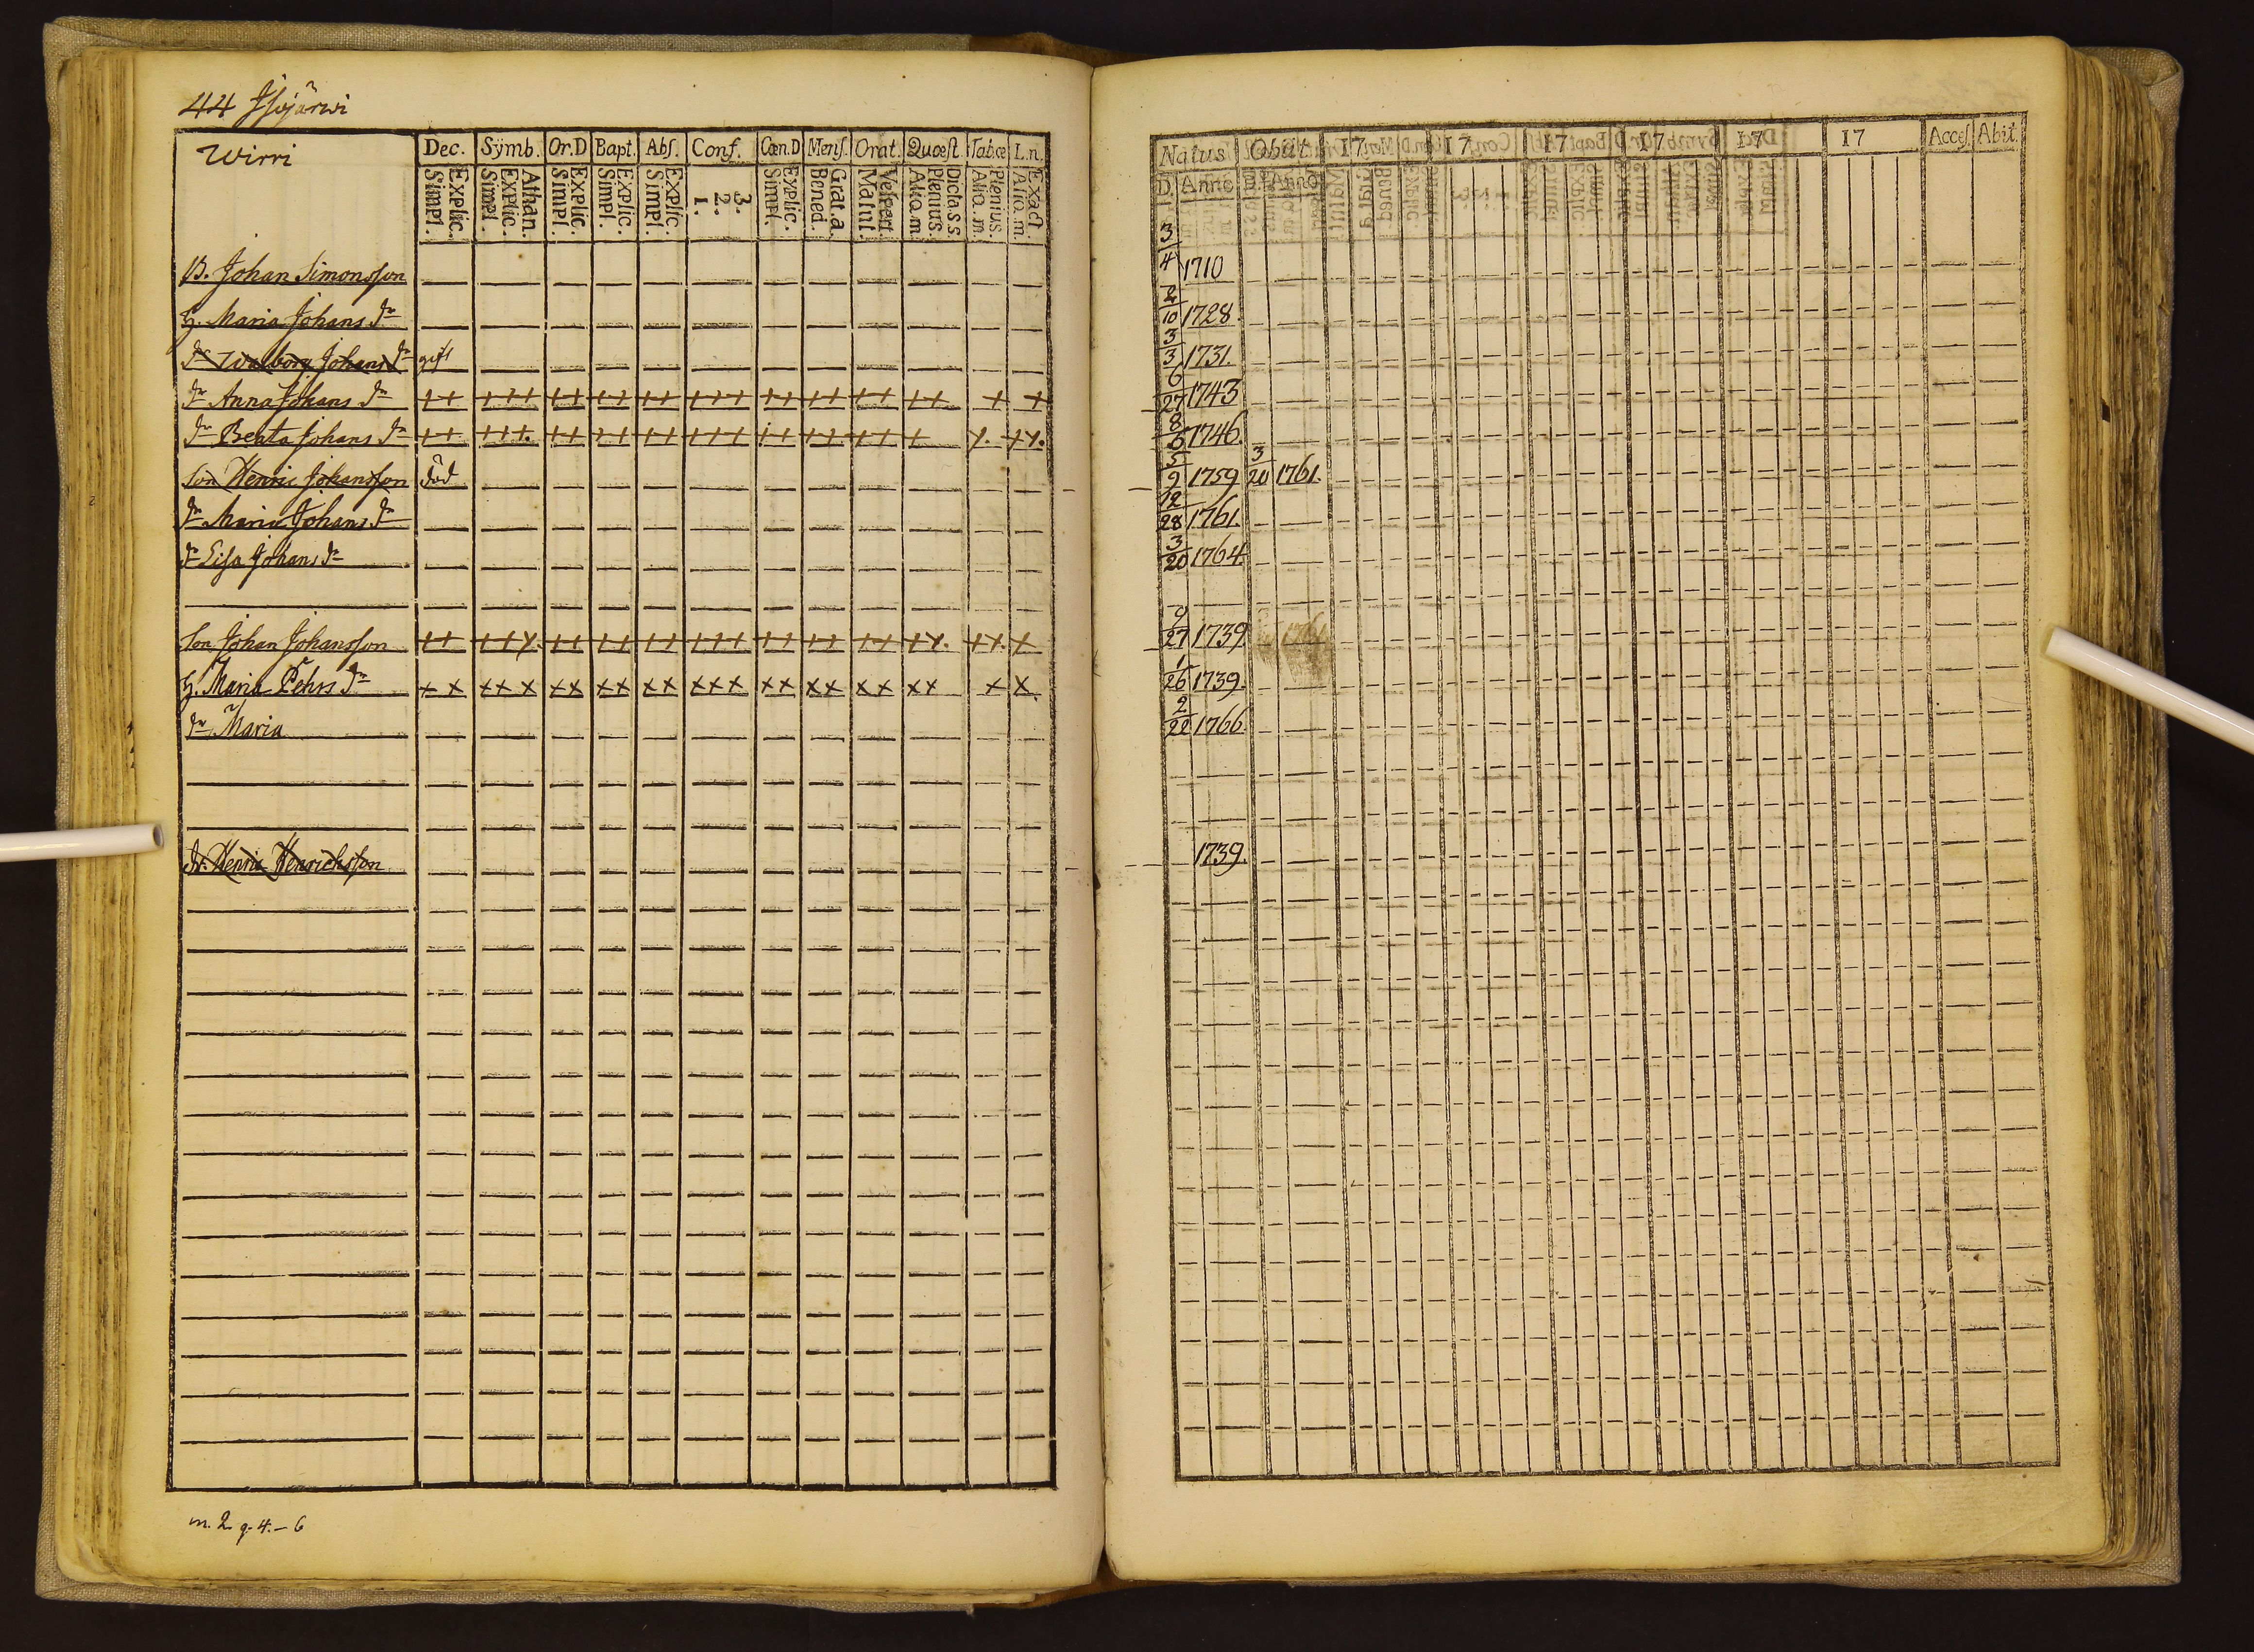 44 Isojärwi
Wirri
Dec. Sÿmb. Or.D Bapt. Abſ. Conf. Cœn.D Menſ. Orat. Quœſt. Tab.œ L.n.
Explic. Simpl. Athan. Explic. Simpl. Explic. Simpl. Explic. Simpl. Explic. Simpl. 3. 2. 1. Explic. Simpl. Grat.a. Bened. Veſpert. Matut. Dicta.S.S. Plenius. Aliq.m. Plenius. Aliq.m. Exact. Aliq.m.
B. Johan Simonsson
H. Maria Johans dr
dr Walborg Johans dr gift
dr Anna Johans dr ++ +++ ++ ++ ++ +++ ++ ++ ++ ++ + +
dr Beata Johans dr ++ +++. ++ ++ ++ +++ ++ ++ +++ + y. +y.
Son Henric Johansson död
dr Maria Johans dr
dr Lisa Johans dr
Son Johan Johansson ++ ++y. ++ ++ ++ +++ ++ ++ ++ +y. +x. x
H. Maria Pehrs dr x x xx x xx xx xx xxx xx xx xx xx x x.
dr Maria
Dr. Henric Henrichsson
m. 2 q. 4. – 6
Natus Obiit 17 17 17 17 17 17 Acceſ. Abit.
D. Anno Anno
3/4 1710
2/10 1728
3/3 1731.
6/27 1743
8/6 1746.
5/9 1759 3/20 1761.
12/28 1761.
3/20 1764.
9/27 1739 1761
1/26 1739.
2/22 1766.
1739.